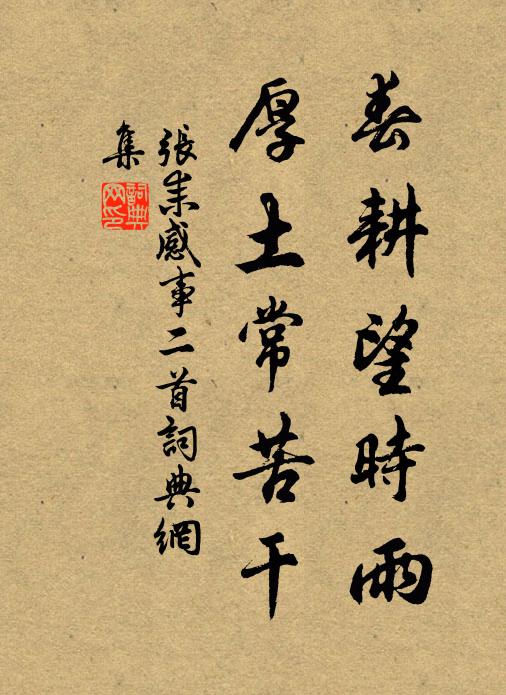 春耕望時雨
厚土常苦干
張耒感事二首詞典網
集
詞典
网印